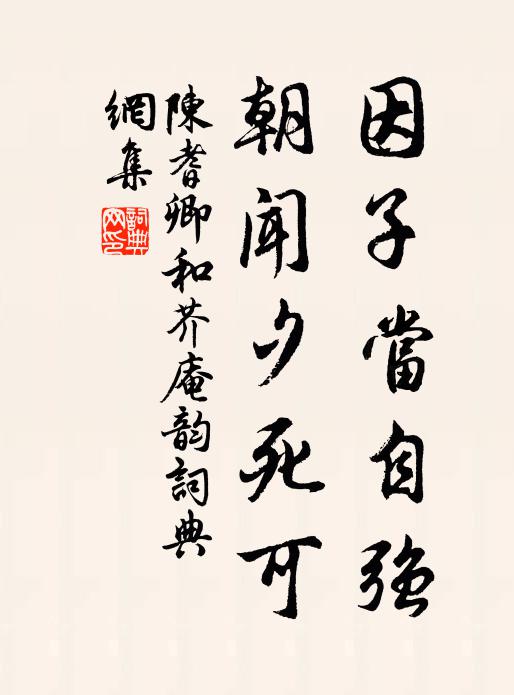 因子當自強
朝聞夕死可
陳耆卿和芥庵韵詞典
網集
詞典網印